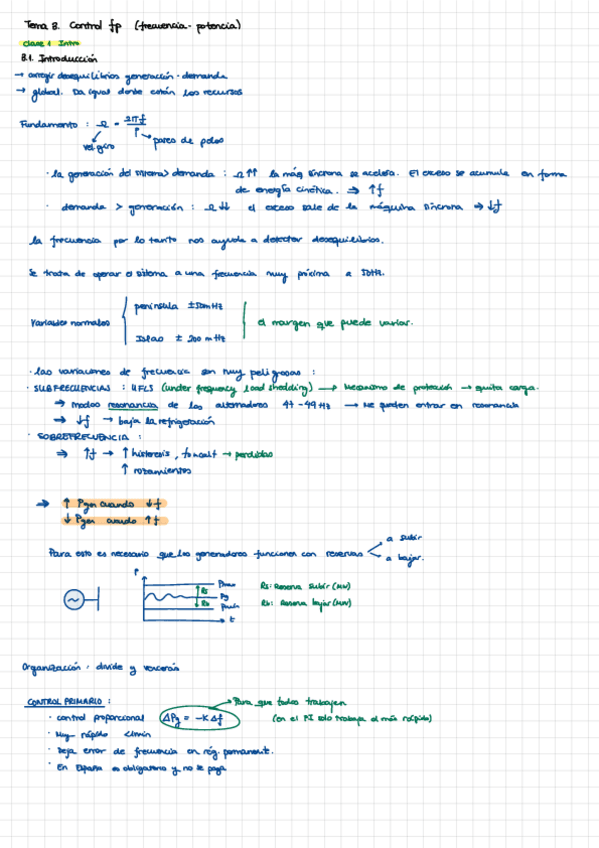 Tema 8. Control fp (frecuencia - potencia)
Clase 1 Intro
8.1. Introducción
→ corregir desequilibrios generación - demanda
→ global. Da igual donde están los recursos
Fundamento : Ω = 2πf / P
vel giro
pares de polos
· la generación del sistema > demanda : Ω ↑↑ la máq síncrona se acelera. El exceso se acumula en forma
de energía cinética. ⇒ ↑f
· demanda > generación : Ω ↓↓ el exceso sale de la máquina síncrona ⇒ ↓f
la frecuencia por lo tanto nos ayuda a detectar desequilibrios.
Se trata de operar el sistema a una frecuencia muy próxima a 50Hz.
península ± 50mHz
Variables normales
el margen que puede variar.
Islas ± 200 mHz
· las variaciones de frecuencia son muy peligrosas :
· SUBFRECUENCIAS : UFLS (under frequency load shedding) → Mecanismo de protección → quita carga.
⇒ modos resonancia de los alternadores 47-49Hz → Me pueden entrar en resonancia
⇒ ↓f → baja la refrigeración
· SOBREFRECUENCIA :
⇒ ↑f → ↑ histéresis, foucalt → perdidas
↑ rozamientos
⇒ ↑ Pgen cuando ↓f
↓ Pgen cuando ↑f
Para esto es necesario que los generadores funcionen con reservas
a subir
a bajar.
P
Pmax
Rs
Pg
Rb
Pmin
t
Rs: Reserva subir (MW)
Rb: Reserva bajar (MW)
Organización, divide y vencerás
CONTROL PRIMARIO :
→ Para que todos trabajen
· control proporcional ΔPg = -K Δf
(en el PI solo trabaja el más rápido)
· Muy rápido <1min
· Deja error de frecuencia en rég. permanente.
· En España es obligatorio y no se paga